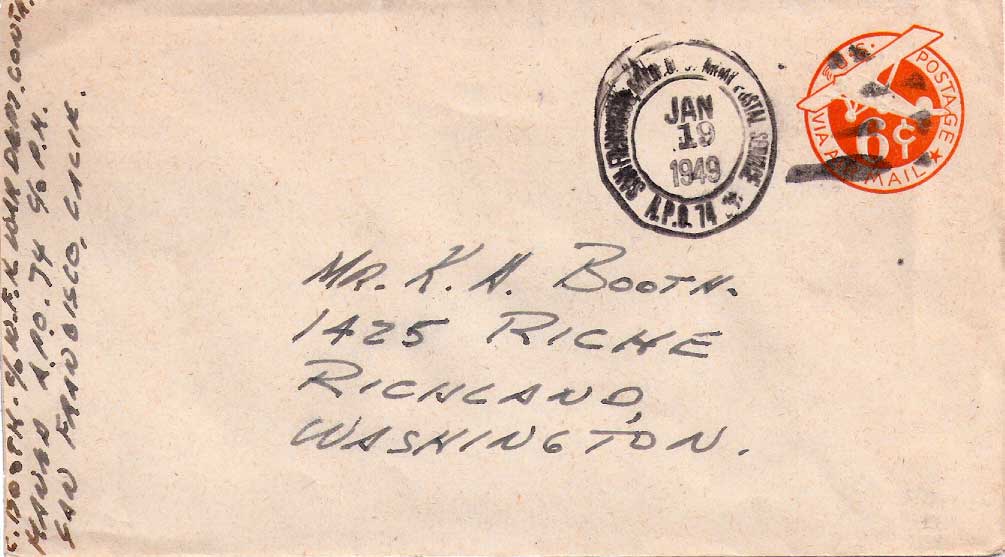 C. BOOTH - c/o M.K. WAR DEPT. CONTR.
MANILA A.P.O. 74 c/o P.M.
SAN FRANCISCO, CALIF.
SAN FRANCISCO, U.S. ARMY POSTAL SERVICE
A.P.O. 74
JAN
19
1949
U.S. POSTAGE
6¢
VIA AIR MAIL
MR. K. A. BOOTH.
1425 RICHE
RICHLAND,
WASHINGTON.